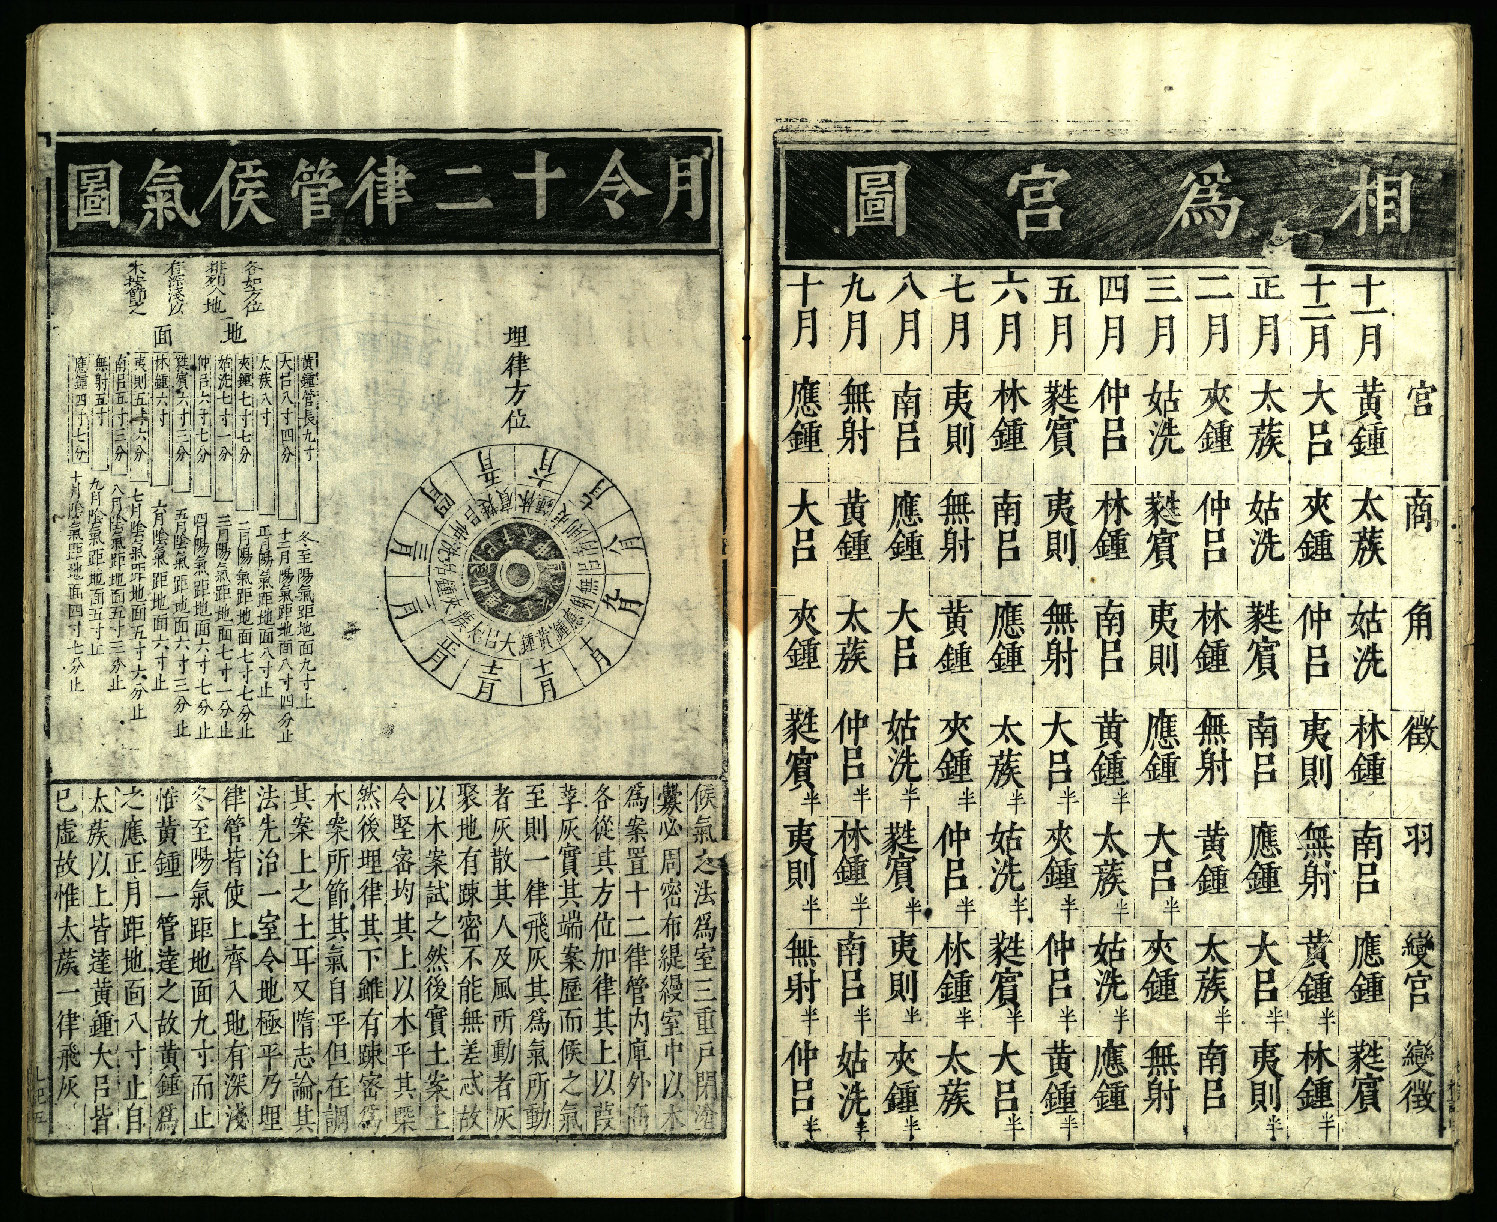 相爲宮圖
宮 商 角 徵 羽 變宮 變徵
十一月 黃鍾 太蔟 姑洗 林鍾 南呂 應鍾 蕤賓
十二月 大呂 夾鍾 仲呂 夷則 無射 黃鍾半 林鍾半
正月 太蔟 姑洗 蕤賓 南呂 應鍾 大呂半 夷則半
二月 夾鍾 仲呂 林鍾 無射 黃鍾 太蔟半 南呂
三月 姑洗 蕤賓 夷則 應鍾 大呂半 夾鍾半 無射
四月 仲呂 林鍾 南呂 黃鍾半 太蔟半 姑洗半 應鍾
五月 蕤賓 夷則 無射 大呂半 夾鍾半 仲呂半 黃鍾半
六月 林鍾 南呂 應鍾 太蔟半 姑洗半 蕤賓半 大呂半
七月 夷則 無射 黃鍾 夾鍾半 仲呂半 林鍾半 太蔟
八月 南呂 應鍾 大呂 姑洗半 蕤賓半 夷則半 夾鍾半
九月 無射 黃鍾 太蔟 仲呂半 林鍾半 南呂半 姑洗半
十月 應鍾 大呂 夾鍾 蕤賓半 夷則半 無射半 仲呂半
月令十二律管候氣圖
埋律方位
十一月 黃鍾
十二月 大呂
正月 太蔟
二月 夾鍾
三月 姑洗
四月 仲呂
五月 蕤賓
六月 林鍾
七月 夷則
八月 南呂
九月 無射
十月 應鍾
各如方位
排列入地
有深淺以
木按節之
地面
黃鍾管長九寸 冬至陽氣距地面九寸止
大呂八寸四分 十二月陽氣距地面八寸四分止
太蔟八寸 正月陽氣距地面八寸止
夾鍾七寸七分 二月陽氣距地面七寸七分止
姑洗七寸一分 三月陽氣距地面七寸一分止
仲呂六寸七分 四月陽氣距地面六寸七分止
蕤賓六寸三分 五月陰氣距地面六寸三分止
林鍾六寸 六月陰氣距地面六寸止
夷則五寸六分 七月陰氣距地面五寸六分止
南呂五寸三分 八月陰氣距地面五寸三分止
無射五寸 九月陰氣距地面五寸止
應鍾四寸七分 十月陰氣距地面四寸七分止
候氣之法爲室三重戶閉塗
釁必周密布緹縵室中以木
爲案置十二律管內庳外高
各從其方位加律其上以葭
莩灰實其端案歷而候之氣
至則一律飛灰其爲氣所動
者灰散其人及風所動者灰
聚地有疎密不能無差忒故
以木案試之然後實土案上
令堅密均其上以水平其槩
然後埋律其下雖有疎密爲
木案所節其氣自平但在調
其案上之土耳又隋志論其
法先治一室令地極平乃埋
律管皆使上齊入地有深淺
冬至陽氣距地面九寸而止
惟黃鍾一管達之故黃鍾爲
之應正月距地面八寸止自
太蔟以上皆達黃鍾大呂皆
已虛故惟太蔟一律飛灰